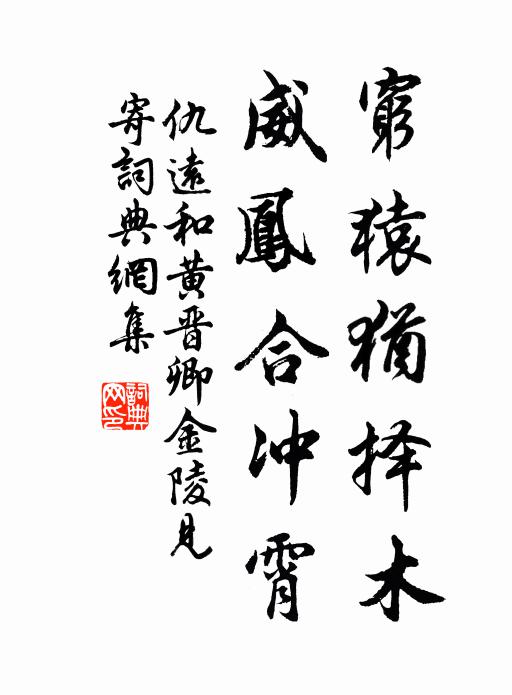 窮猿猶择木
威鳳合冲霄
仇遠和黄晋卿金陵見
寄詞典網集
詞典
网印